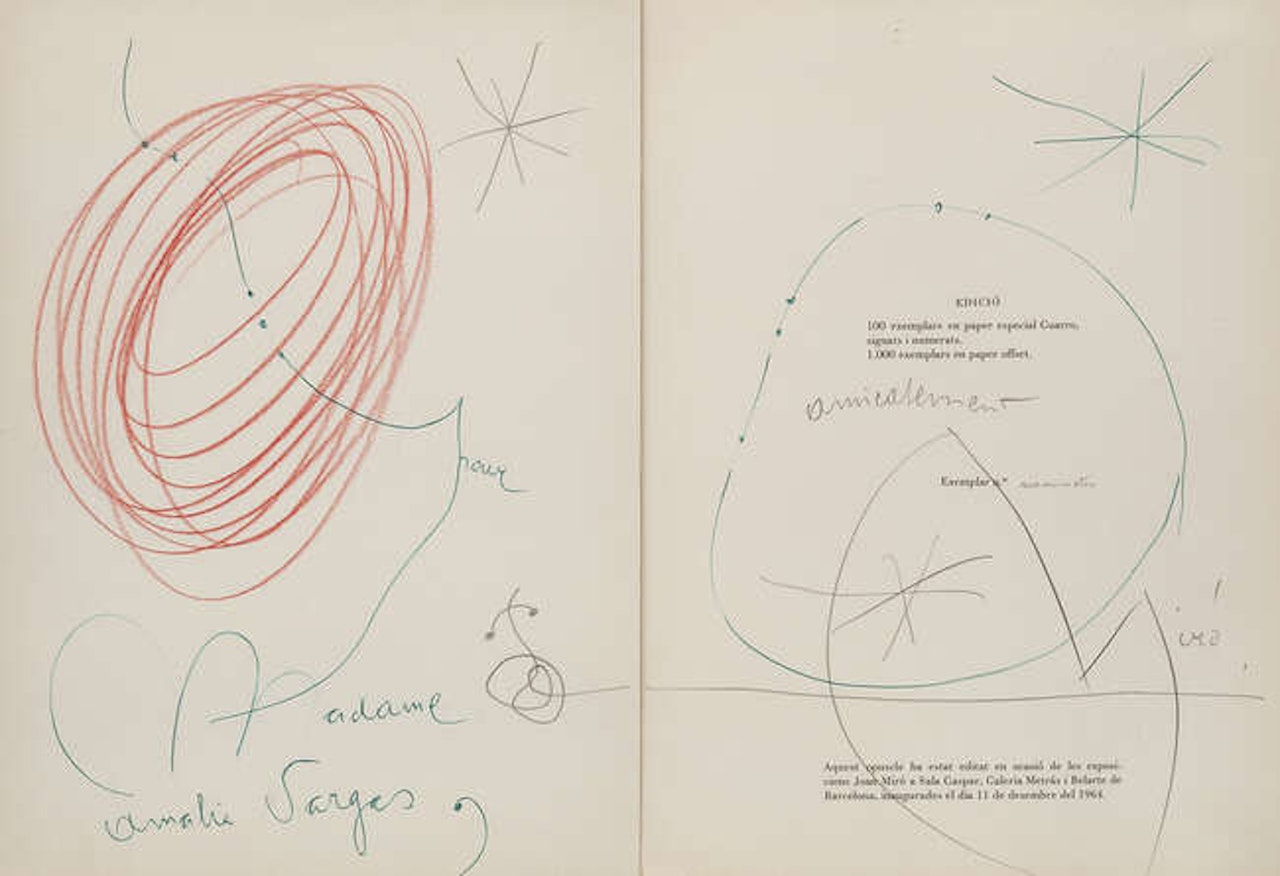 pour
Madame
Amalia Vargas,
EDICIÓ
100 exemplars en paper especial Guarro,
signats i numerats.
1.000 exemplars en paper offset.
amicalement
Exemplar n.º
Miró
Aquest opuscle ha estat editat en ocasió de les exposi-
cions Joan Miró a Sala Gaspar, Galeria Metràs i Belarte de
Barcelona, inaugurades el dia 11 de desembre del 1964.